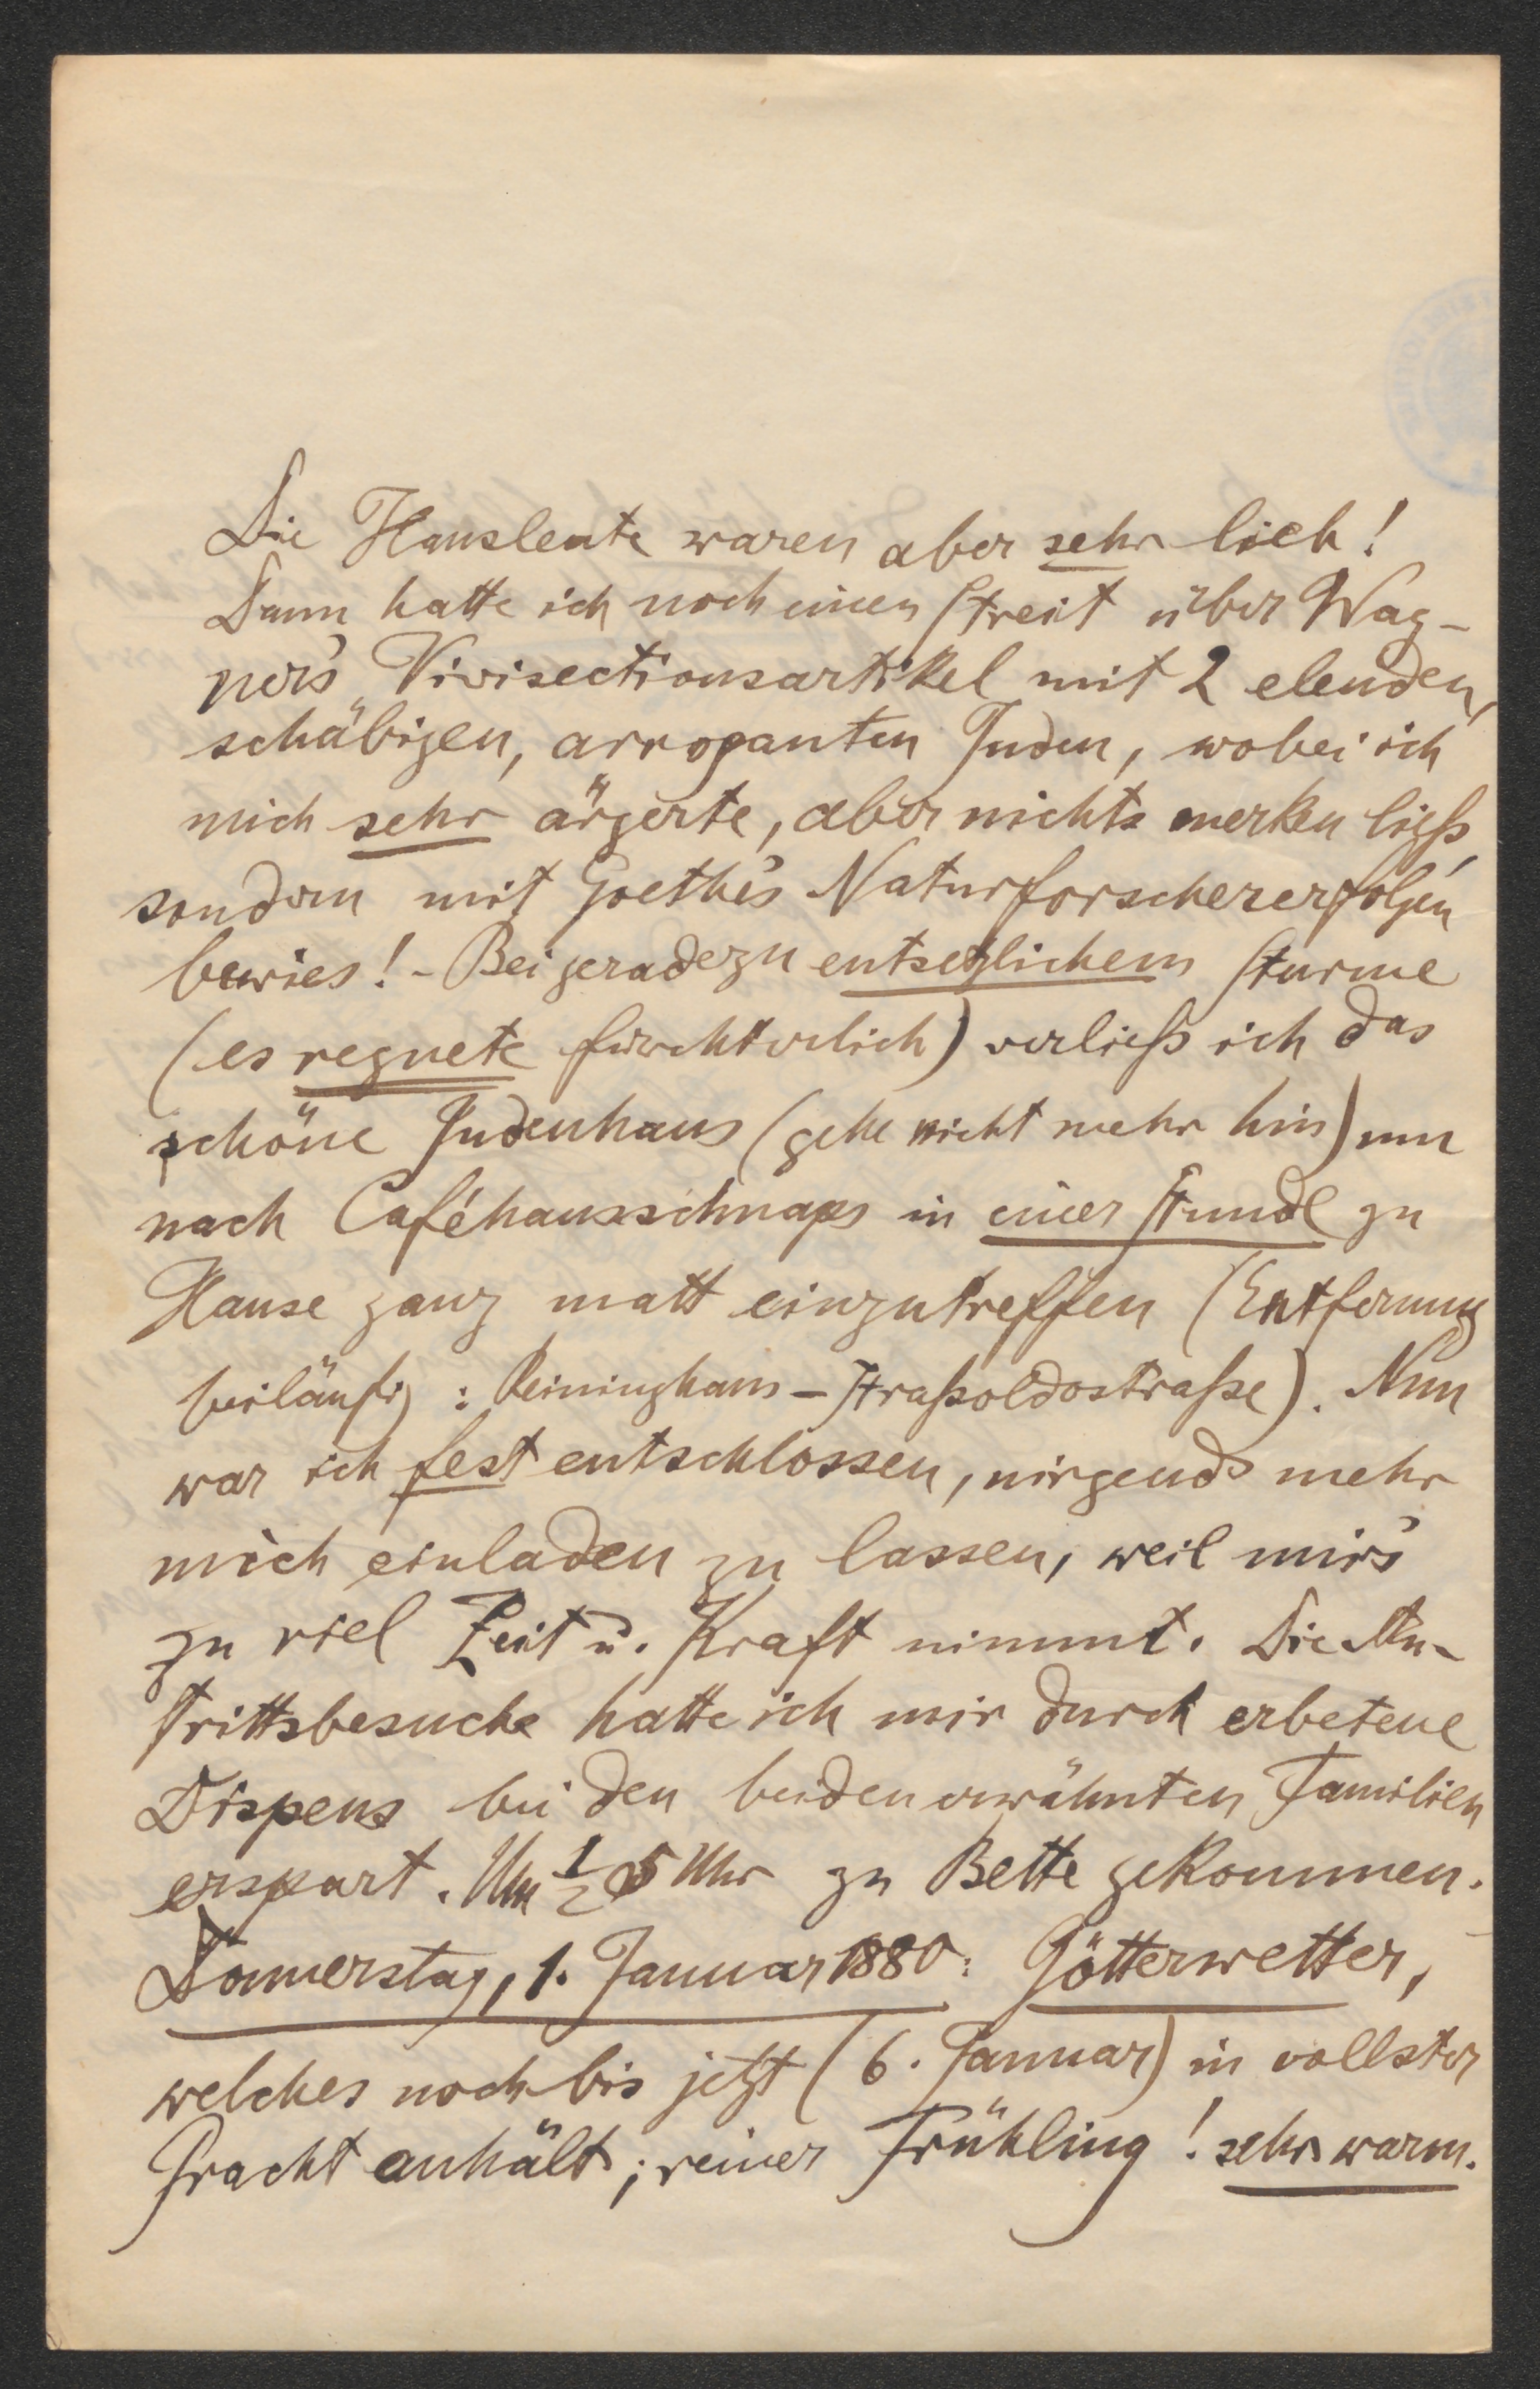 Die Hausleute waren aber sehr lieb!
Dann hatte ich noch einen Streit über Wag-
ner's Vivisectionsartikel mit 2 elenden,
schäbigen, arroganten Juden, wobei ich
mich sehr ärgerte, aber nichts merken ließ,
sondern mit Goethe's Naturforschererfolgen
bewies! - Bei geradezu entsetzlichem Sturme
(es regnete fürchterlich) verließ ich das
schöne Judenhaus (gehe nicht mehr hin) um
nach Caféhausschnaps in einer Stunde zu
Hause ganz matt einzutreffen (Entfernung
beiläufig: Reininghaus - Straßoldostraße). Nun
war ich fest entschlossen, nirgends mehr
mich einladen zu lassen, weil mir's
zu viel Zeit u. Kraft nimmt. Die An-
trittsbesuche hatte ich mir durch erbetene
Dispens bei den beiden erwähnten Familien
erspart. Um ½ 5 Uhr zu Bette gekommen.
Donnerstag, 1. Januar 1880: Götterwetter,
welches noch bis jetzt (6. Januar) in vollster
Pracht anhält; reiner Frühling! sehr warm.